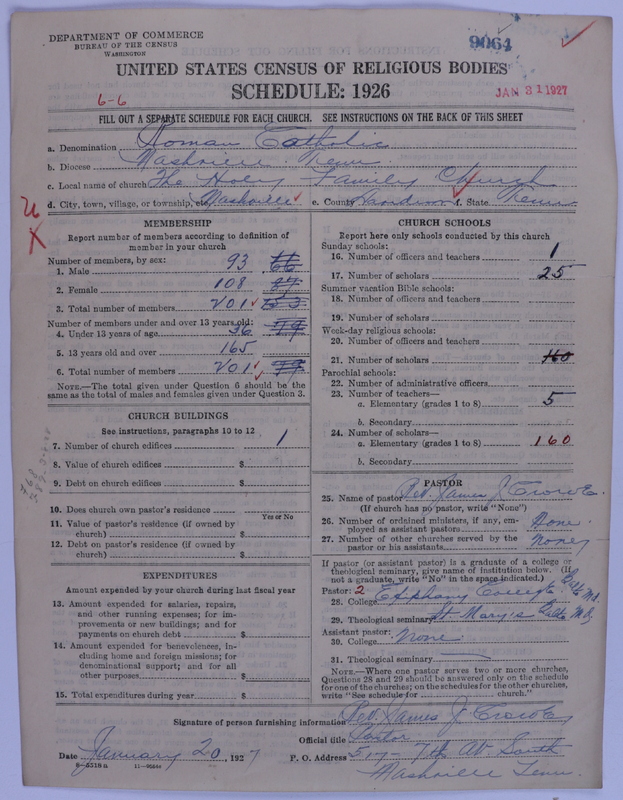 DEPARTMENT OF COMMERCE
BUREAU OF THE CENSUS
WASHINGTON
9064
UNITED STATES CENSUS OF RELIGIOUS BODIES
SCHEDULE: 1926
6-6
JAN 31 1927
FILL OUT A SEPARATE SCHEDULE FOR EACH CHURCH. SEE INSTRUCTIONS ON THE BACK OF THIS SHEET
a. Denomination Roman Catholic
b. Diocese Nashville Tenn
c. Local name of church The Holy Family Church
d. City, town, village, or township, etc. Nashville e. County Davidson f. State Tenn
MEMBERSHIP
Report number of members according to definition of
member in your church
Number of members, by sex:
1. Male 93 66
2. Female 108 87
3. Total number of members 201 153
Number of members under and over 13 years old:
4. Under 13 years of age 36
5. 13 years old and over 165
6. Total number of members 201
NOTE.—The total given under Question 6 should be the
same as the total of males and females given under Question 3.
CHURCH BUILDINGS
See instructions, paragraphs 10 to 12
7. Number of church edifices 1
8. Value of church edifices $
9. Debt on church edifices $
10. Does church own pastor's residence
Yes or No
11. Value of pastor's residence (if owned by
church) $
12. Debt on pastor's residence (if owned by
church) $
EXPENDITURES
Amount expended by your church during last fiscal year
13. Amount expended for salaries, repairs,
and other running expenses; for im-
provements or new buildings; and for
payments on church debt $
14. Amount expended for benevolences, in-
cluding home and foreign missions; for
denominational support; and for all
other purposes $
15. Total expenditures during year $
CHURCH SCHOOLS
Report here only schools conducted by this church
Sunday schools:
16. Number of officers and teachers 1
17. Number of scholars 25
Summer vacation Bible schools:
18. Number of officers and teachers
19. Number of scholars
Week-day religious schools:
20. Number of officers and teachers
21. Number of scholars 160
Parochial schools:
22. Number of administrative officers
23. Number of teachers—
a. Elementary (grades 1 to 8) 5
b. Secondary
24. Number of scholars—
a. Elementary (grades 1 to 8) 160
b. Secondary
PASTOR
25. Name of pastor Rev. James J Crowe
(If church has no pastor, write "None")
26. Number of ordained ministers, if any, em-
ployed as assistant pastors None
27. Number of other churches served by the
pastor or his assistants None
If pastor (or assistant pastor) is a graduate of a college or
theological seminary, give name of institution below. (If
not a graduate, write "No" in the space indicated.)
Pastor: 2
28. College Epiphany College Balto Md.
29. Theological seminary St. Mary's Balto Md.
Assistant pastor:
30. College None
31. Theological seminary
NOTE.—Where one pastor serves two or more churches,
Questions 28 and 29 should be answered only on the schedule
for one of the churches; on the schedules for the other churches,
write "See schedule for church."
Signature of person furnishing information Rev. James J Crowe
Official title Pastor
Date January 20, 1927 P. O. Address 517- 7th Av. South
Nashville Tenn.
8-5518a 11-9654